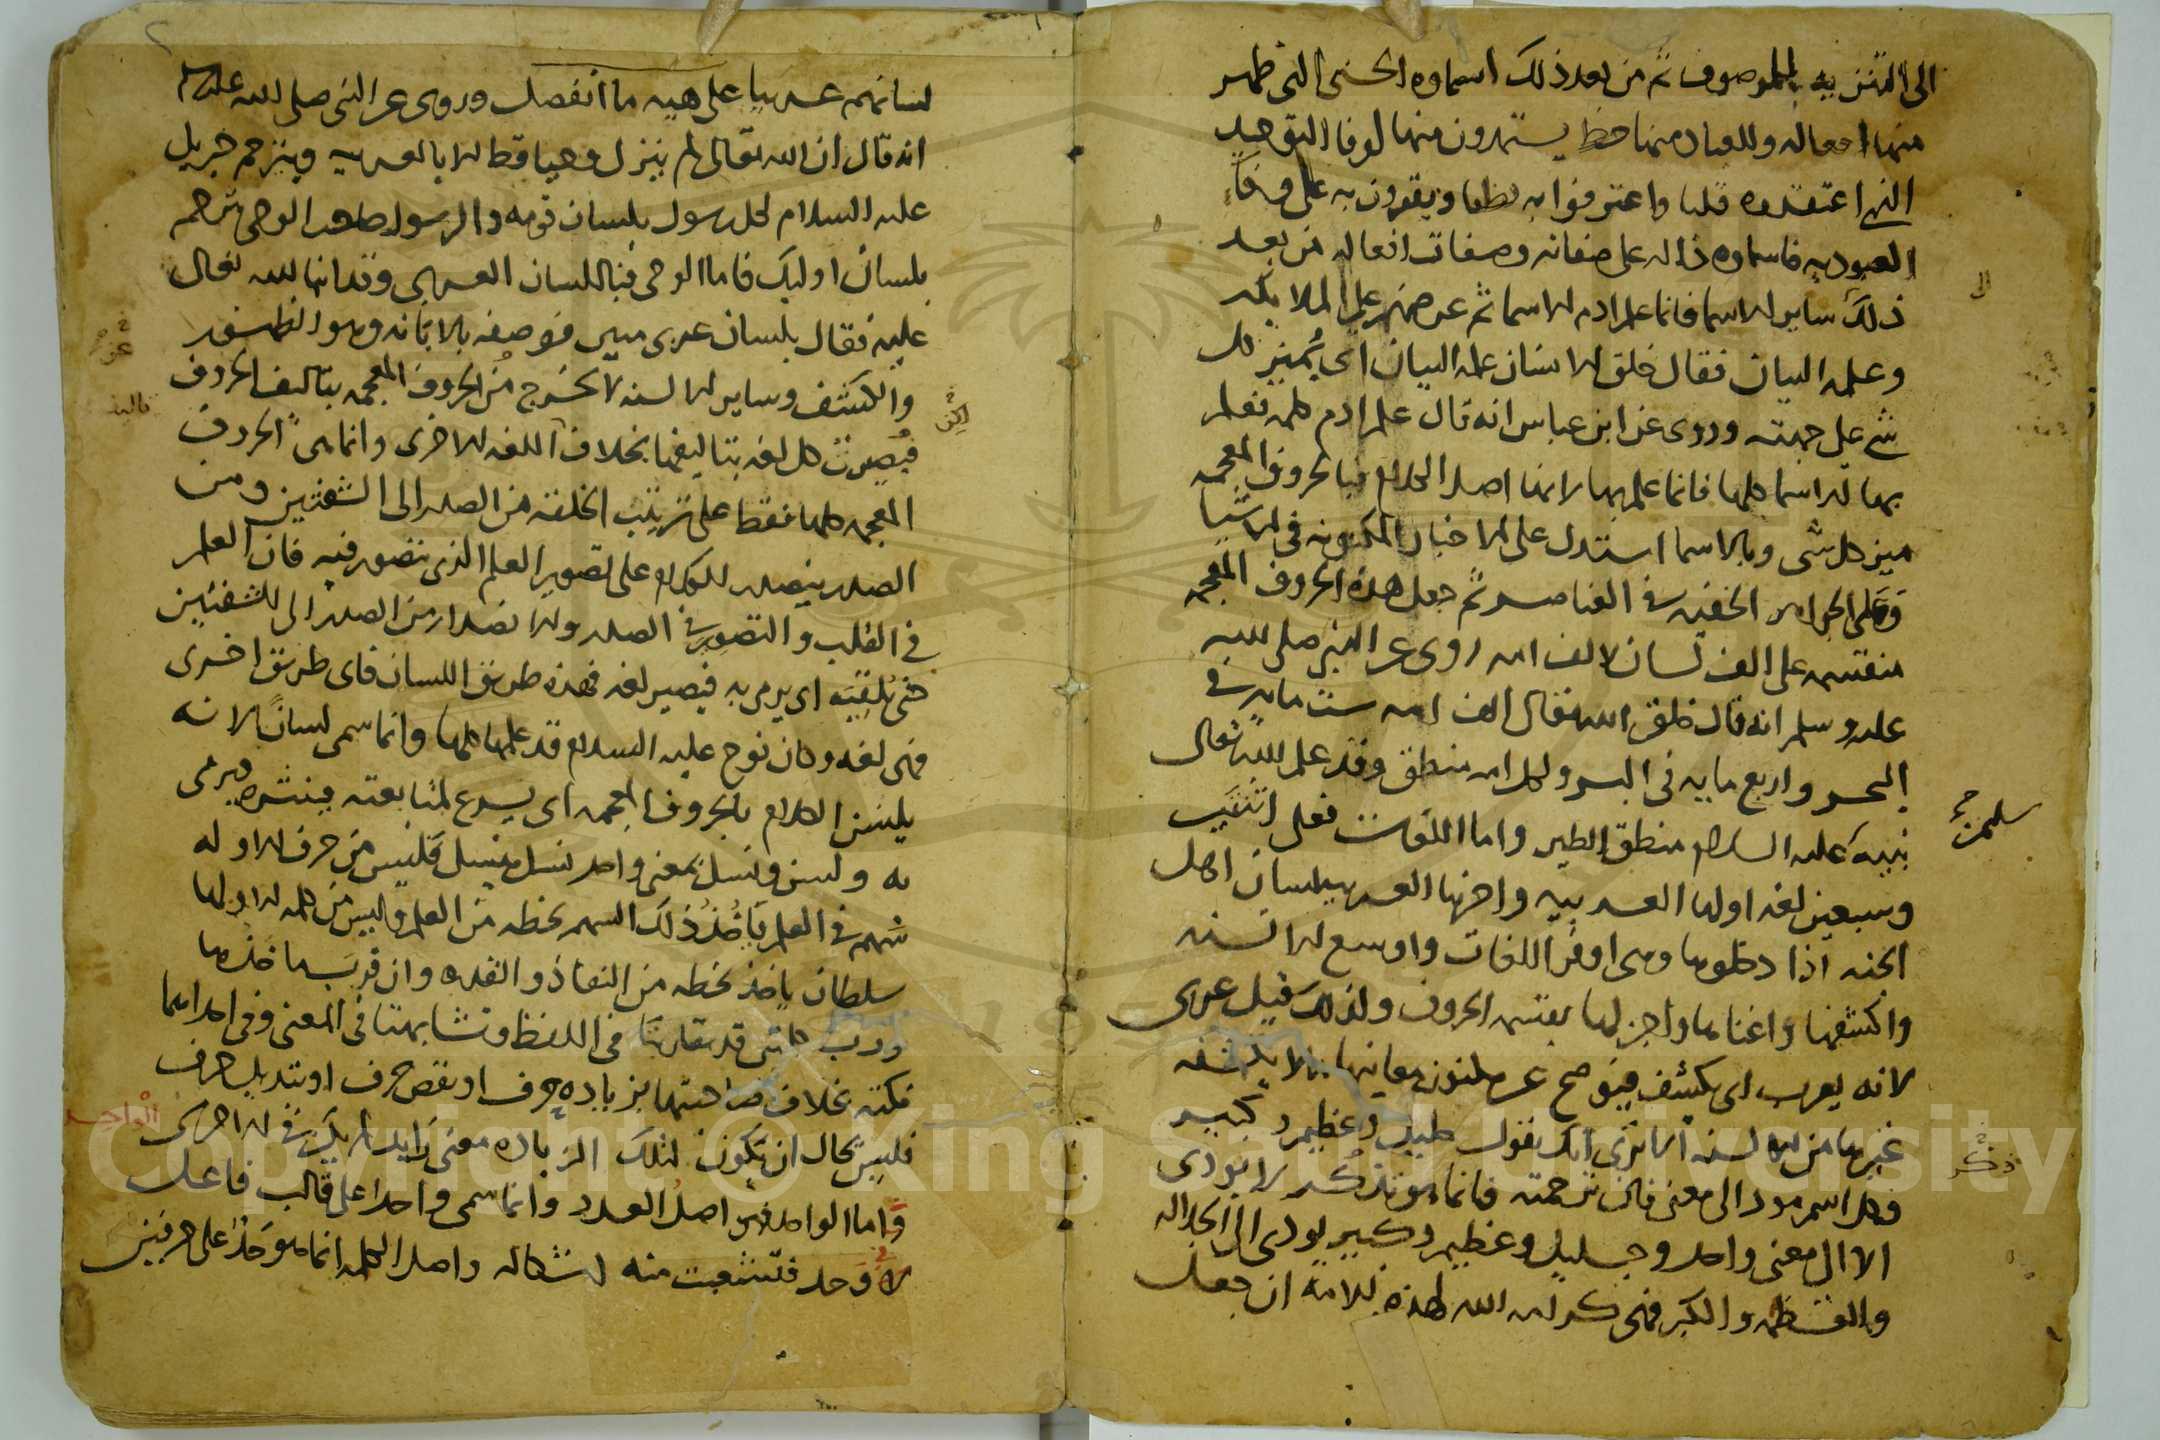 الى التنزيه بالموصوف ثم من بعد ذلك اسماوه الحسنى التى ظهر
منها افعاله وللعباد منها حظ يستمدون منها لوفا التوحيد
الذى اعتقدوه قلبا واعترفوا به نطقا ويقرون به على وفا
العبوديه فاسماوه داله على صفاته وصفات افعاله من بعد
ذلك ساير الاسما فانما علم ادم الاسما ثم عرضهم على الملايكه
وعلمه البيان فقال خلق الانسان علمه البيان اى يميز كل
شى على جهته وروى عن ابن عباس انه قال علم ادم كلمه فعلم
بها الاسما كلها فانما علم بها لانها اصل الكلام فبالحروف المعجمه
ميز كل شى وبالاسما استدل على الاخبار المكنونه فى الاشيا
وعلى الجواهر الخفيه فى العناصر ثم جعل هذه الحروف المعجمه
منقسمه على الف لسان لالف امه روى عن النبى صلى الله
عليه وسلم انه قال خلق الله تعالى الف امه ست مايه فى
البحر واربع مايه فى البر ولكل امه منطق وقد علم الله تعالى
نبيه عليه السلام منطق الطير واما اللغات فعلى اثنتين
وسبعين لغه اولها العربيه واخرها العربيه لسان اهل
الجنه اذا دخلوها وهى اوفر اللغات واوسع الالسنه
واكشفها واغناها واجزلها بقسمه الحروف ولذلك قيل عربى
لانه يعرب اى يكشف فيوضح عن مكنون معانيها ما لا يكشفه
غيرها من الالسنه الا ترى انك تقول جليل وعظيم وكبير
وكل اسم مود الى معنى فان ترجمته فانما هو بذكر لا يودى
الا الى معنى واحد وجليل وعظيم وكبير يودى الى الجلاله
والعظمه والكبر فمن كرامه الله لهذه الامه ان جعل
الى
سليمن
ذكر
لسانهم عربيا على هيه ما انفصل وروى عن النبى صلى الله عليه وسلم
انه قال ان الله تعالى لم ينزل وحيا قط الا بالعربيه ويترجم جبريل
عليه السلام لكل رسول بلسان قومه والرسول صاحب الوحى يترجم
بلسان اوليك فاما الوحى فباللسان العربى وقد اثنى الله تعالى
عليه فقال بلسان عربى مبين فوصفه بالابانه وهو الظهور
والكشف وساير الالسنه لا تخرج من الحروف المعجمه بتاليف الحروف
فيصيرت كل لغه بتاليفها بخلاف اللغه الاخرى وانما هى الحروف
المعجمه كلها فقط على ترتيب الخلقه من الصدر الى الشفتين ومن
الصدر يتصدر الكلام على تصوير العلم الذى يتصور فيه فان العلم
فى القلب والتصور فى الصدر والاصدار من الصدر الى الشفتين
حتى تلقيه اى يرمى به فيصير لغه فهذه طريق اللسان فاى طريق اخرى
فهى لغه وكان نوح عليه السلام قد علمها كلها وانما سمى لسانا لانه
يلسن الكلام بالحروف المعجمه اى يسرع لمتابعته فينشره فيرمى
به ولسن ونسل بمعنى واحد نسل ينسل فليس من حرف الا وله
سهم فى العلم ياخذ ذلك السهم بحظه من العلم وليس من كلمه الا ولها
سلطان ياخذ بحظه من النفاذ والقدره وان قرب ماخذها
ورب كلمتين قد تقاربتا فى اللفظ وتشابهتا فى المعنى وفى احداهما
نكته بخلاف صاحبتها بزياده حرف او نقص حرف او تبديل حرف
فليس بحال ان تكون لتلك الزياده معنى زايدا لم يكن فى الاخرى
واما الواحد فهو اصل العدد وانما سمى واحدا على قالب فاعل
لا وحد فتشعبت منه اشكاله واصل الكلمه انما هو حد على حرفين
لكن
تاليف
الواحد